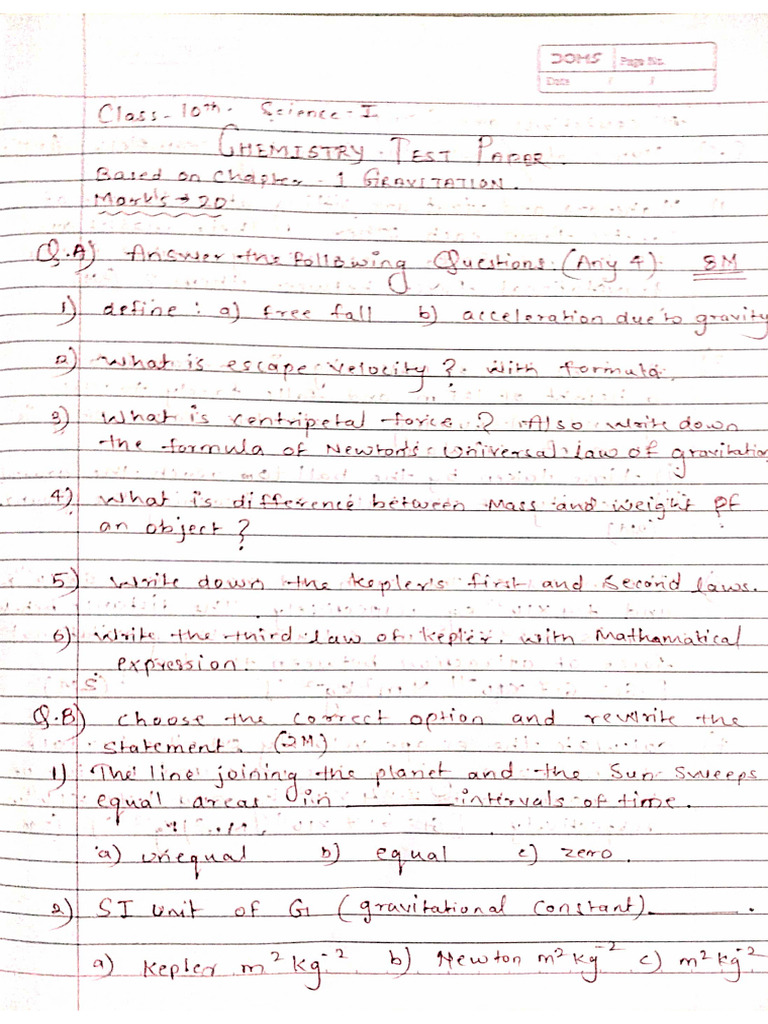 DOMS Page No.
Date / /
Class-10th. Science-I
CHEMISTRY. TEST PAPER.
Based on Chapter. 1 GRAVITATION.
Mark's → 20
Q.A) Answer the following Questions. (Any 4) 8M
1) define : a) free fall b) acceleration due to gravity
2) What is escape velocity? with formula.
3) What is centripetal force.? Also write down
the formula of Newton's universal law of gravitation
4) What is difference between Mass and weight of
an object?
5) Write down the kepler's first and second laws.
6) Write the third law of kepler. with Mathamatical
expression.
Q.B) choose the correct option and rewrite the
statement. (2M)
1) The line joining the planet and the Sun sweeps
equal areas in ________ intervals of time.
a) unequal b) equal c) zero.
2) SI unit of G (gravitational constant) ________.
a) Kepler m² kg⁻² b) Newton m² kg⁻² c) m² kg⁻²